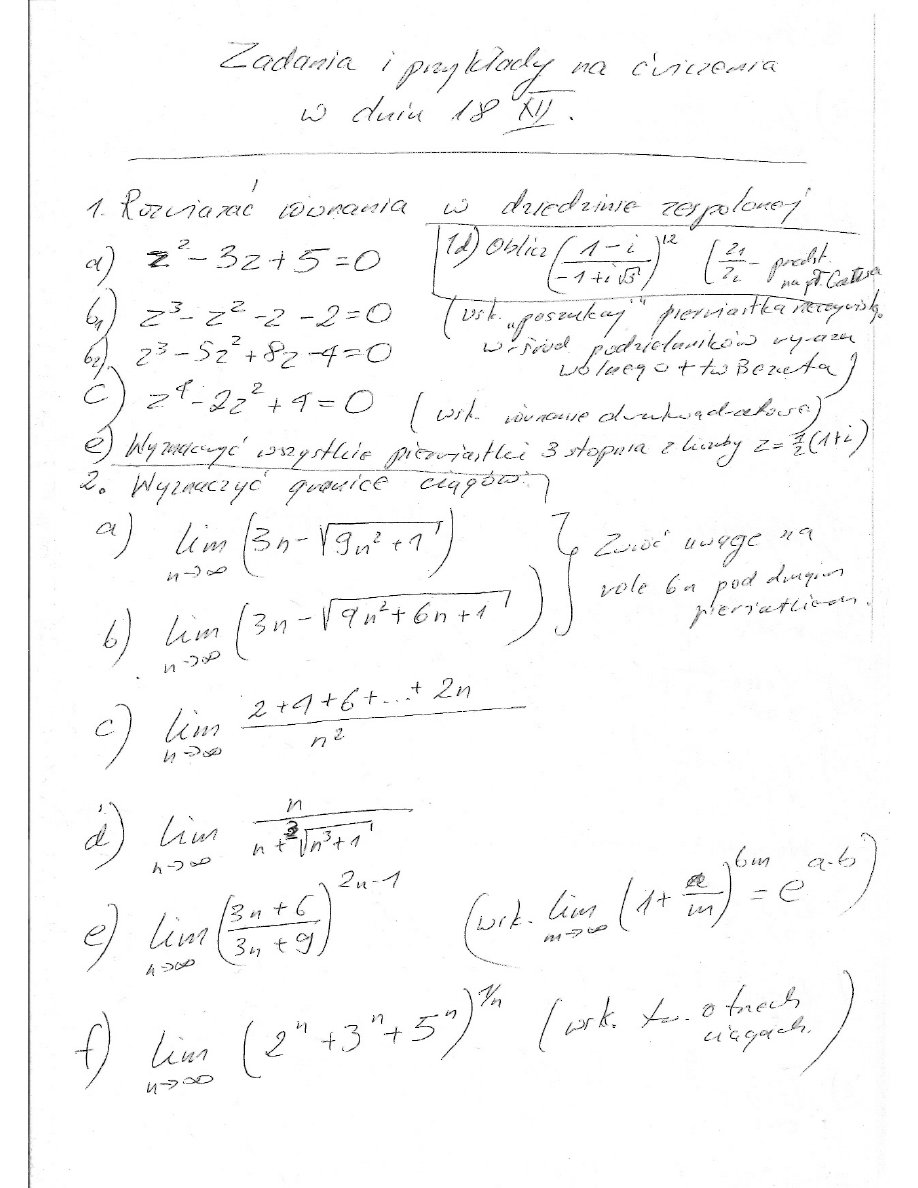 Zadania i przykłady na ćwiczenia
w dniu 18 XII.
1. Rozwiązać równania w dziedzinie zespolonej
a) z² - 3z + 5 = 0
1d) Oblicz ((1-i)/(-1+i√3))¹² (z₁/z₂ - przedst. na pł. Gaussa
b₁) z³ - z² - z - 2 = 0 (wsk. "poszukaj" pierwiastka rzeczywist.
b₂) z³ - 5z² + 8z - 4 = 0 wśród podzielników wyrazu
wolnego + tw Bezouta)
c) z⁴ - 2z² + 4 = 0 (wsk. równanie dwukwadratowe)
e) Wyznaczyć wszystkie pierwiastki 3 stopnia z liczby z = ½(1+i)
2. Wyznaczyć granice ciągów:
a) lim n→∞ (3n - √(9n² + 1))
Zwróć uwagę na
rolę 6n pod drugim
pierwiastkiem.
b) lim n→∞ (3n - √(9n² + 6n + 1))
c) lim n→∞ (2+4+6+...+2n)/n²
d) lim n→∞ n/(n + ³√(n³+1))
e) lim n→∞ ((3n+6)/(3n+9))²ⁿ⁻¹ (wsk. lim m→∞ (1 + a/m)^(bm) = e^(a·b))
f) lim n→∞ (2ⁿ + 3ⁿ + 5ⁿ)^(1/n) (wsk. tw. o trzech
ciągach.)